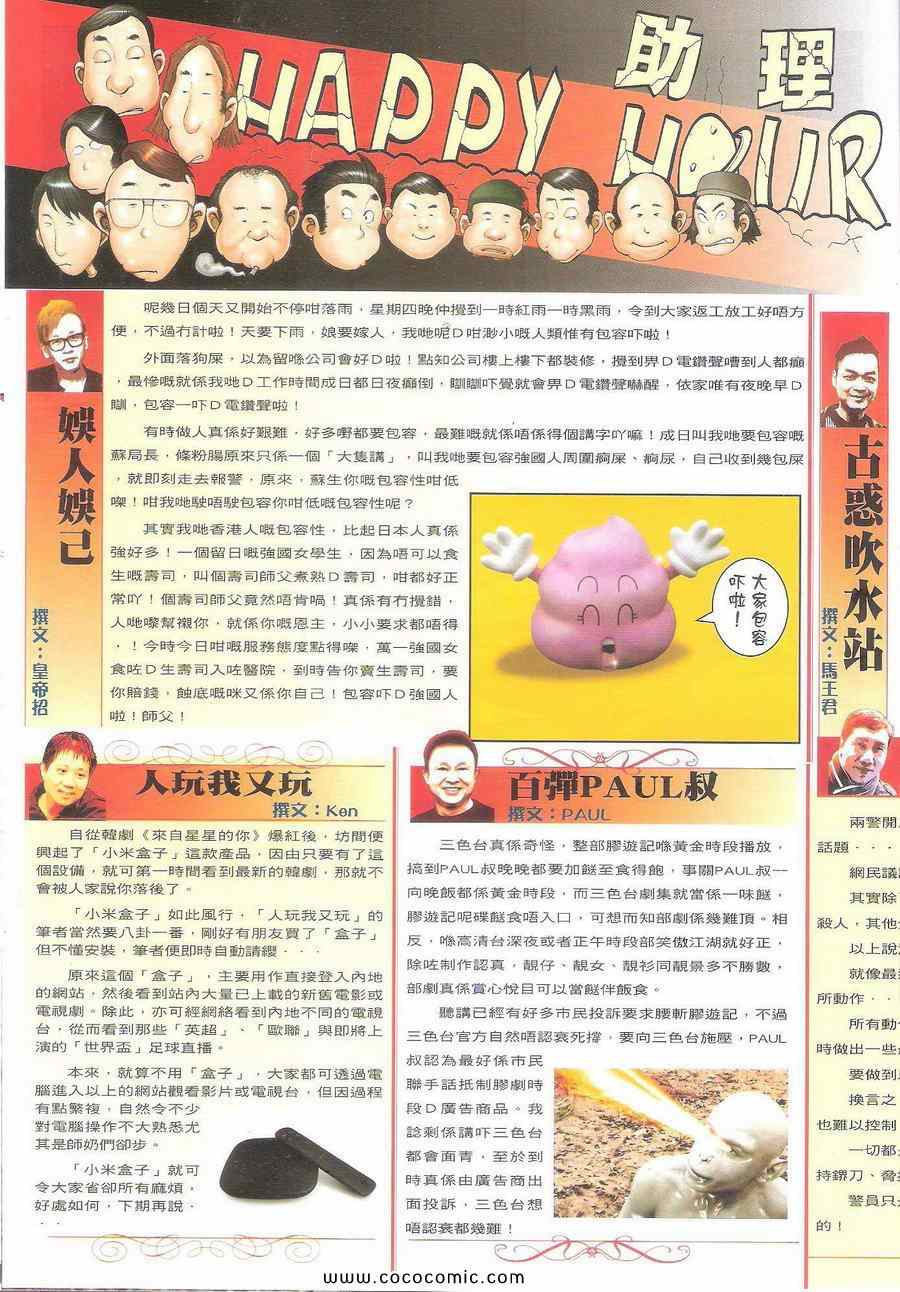 HAPPY
助理
HOUR
娛人娛己
撰文：皇帝招
呢幾日個天又開始不停咁落雨，星期四晚仲攪到一時紅雨一時黑雨，令到大家返工放工好唔方
便，不過冇計啦！天要下雨，娘要嫁人，我哋呢D咁渺小嘅人類惟有包容吓啦！
外面落狗屎，以為留喺公司會好D啦！點知公司樓上樓下都裝修，攪到畀D電鑽聲嘈到人都癲
，最慘嘅就係我哋D工作時間成日都日夜癲倒，瞓瞓吓覺就會畀D電鑽聲嚇醒，依家唯有夜晚早D
瞓，包容一吓D電鑽聲啦！
有時做人真係好艱難，好多嘢都要包容，最難嘅就係唔係得個講字吖嘛！成日叫我哋要包容嘅
蘇局長，條粉腸原來只係一個「大隻講」，叫我哋要包容強國人周圍痾屎、痾尿，自己收到幾包屎
，就即刻走去報警，原來，蘇生你嘅包容性咁低
㗎！咁我哋駛唔駛包容你咁低嘅包容性呢？
其實我哋香港人嘅包容性，比起日本人真係
強好多！一個留日嘅強國女學生，因為唔可以食
生嘅壽司，叫個壽司師父煮熟D壽司，咁都好正
常吖！個壽司師父竟然唔肯喎！真係有冇攪錯，
人哋嚟幫襯你，就係你嘅恩主，小小要求都唔得
！今時今日咁嘅服務態度點得㗎，萬一強國女
食咗D生壽司入咗醫院，到時告你賣生壽司，要
你賠錢，蝕底嘅咪又係你自己！包容吓D強國人
啦！師父！
大家包容
吓啦！
古惑吹水站
撰文：馬王君
人玩我又玩
撰文：Ken
自從韓劇《來自星星的你》爆紅後，坊間便
興起了「小米盒子」這款產品，因由只要有了這
個設備，就可第一時間看到最新的韓劇，那就不
會被人家說你落後了。
「小米盒子」如此風行，「人玩我又玩」的
筆者當然要八卦一番，剛好有朋友買了「盒子」
但不懂安裝，筆者便即時自動請纓．．．
原來這個「盒子」，主要用作直接登入內地
的網站，然後看到站內大量已上載的新舊電影或
電視劇。除此，亦可經網絡看到內地不同的電視
台，從而看到那些「英超」、「歐聯」與即將上
演的「世界盃」足球直播。
本來，就算不用「盒子」，大家都可透過電
腦進入以上的網站觀看影片或電視台，但因過程
有點繁複，自然令不少
對電腦操作不大熟悉尤
其是師奶們卻步。
「小米盒子」就可
令大家省卻所有麻煩，
好處如何，下期再說．
．．
百彈PAUL叔
撰文：PAUL
三色台真係奇怪，整部膠遊記喺黃金時段播放，
搞到PAUL叔晚晚都要加餸至食得飽，事關PAUL叔一
向晚飯都係黃金時段，而三色台劇集就當係一味餸，
膠遊記呢碟餸食唔入口，可想而知部劇係幾難頂。相
反，喺高清台深夜或者正午時段部笑傲江湖就好正，
除咗製作認真，靚仔、靚女、靚衫同靚景多不勝數，
部劇真係賞心悅目可以當餸伴飯食。
聽講已經有好多市民投訴要求腰斬膠遊記，不過
三色台官方自然唔認衰死撐，要向三色台施壓，PAUL
叔認為最好係市民
聯手話抵制膠劇時
段D廣告商品。我
諗剩係講吓三色台
都會面青，至於到
時真係由廣告商出
面投訴，三色台想
唔認衰都幾難！
兩警開
話題．．
網民議
其實除
殺人，其他
以上說
就像最
所動作．．
所有動
時做出一些
要做到
換言之
也難以控制
一切都
持鎅刀、脅
警員只
的！
www.cococomic.com